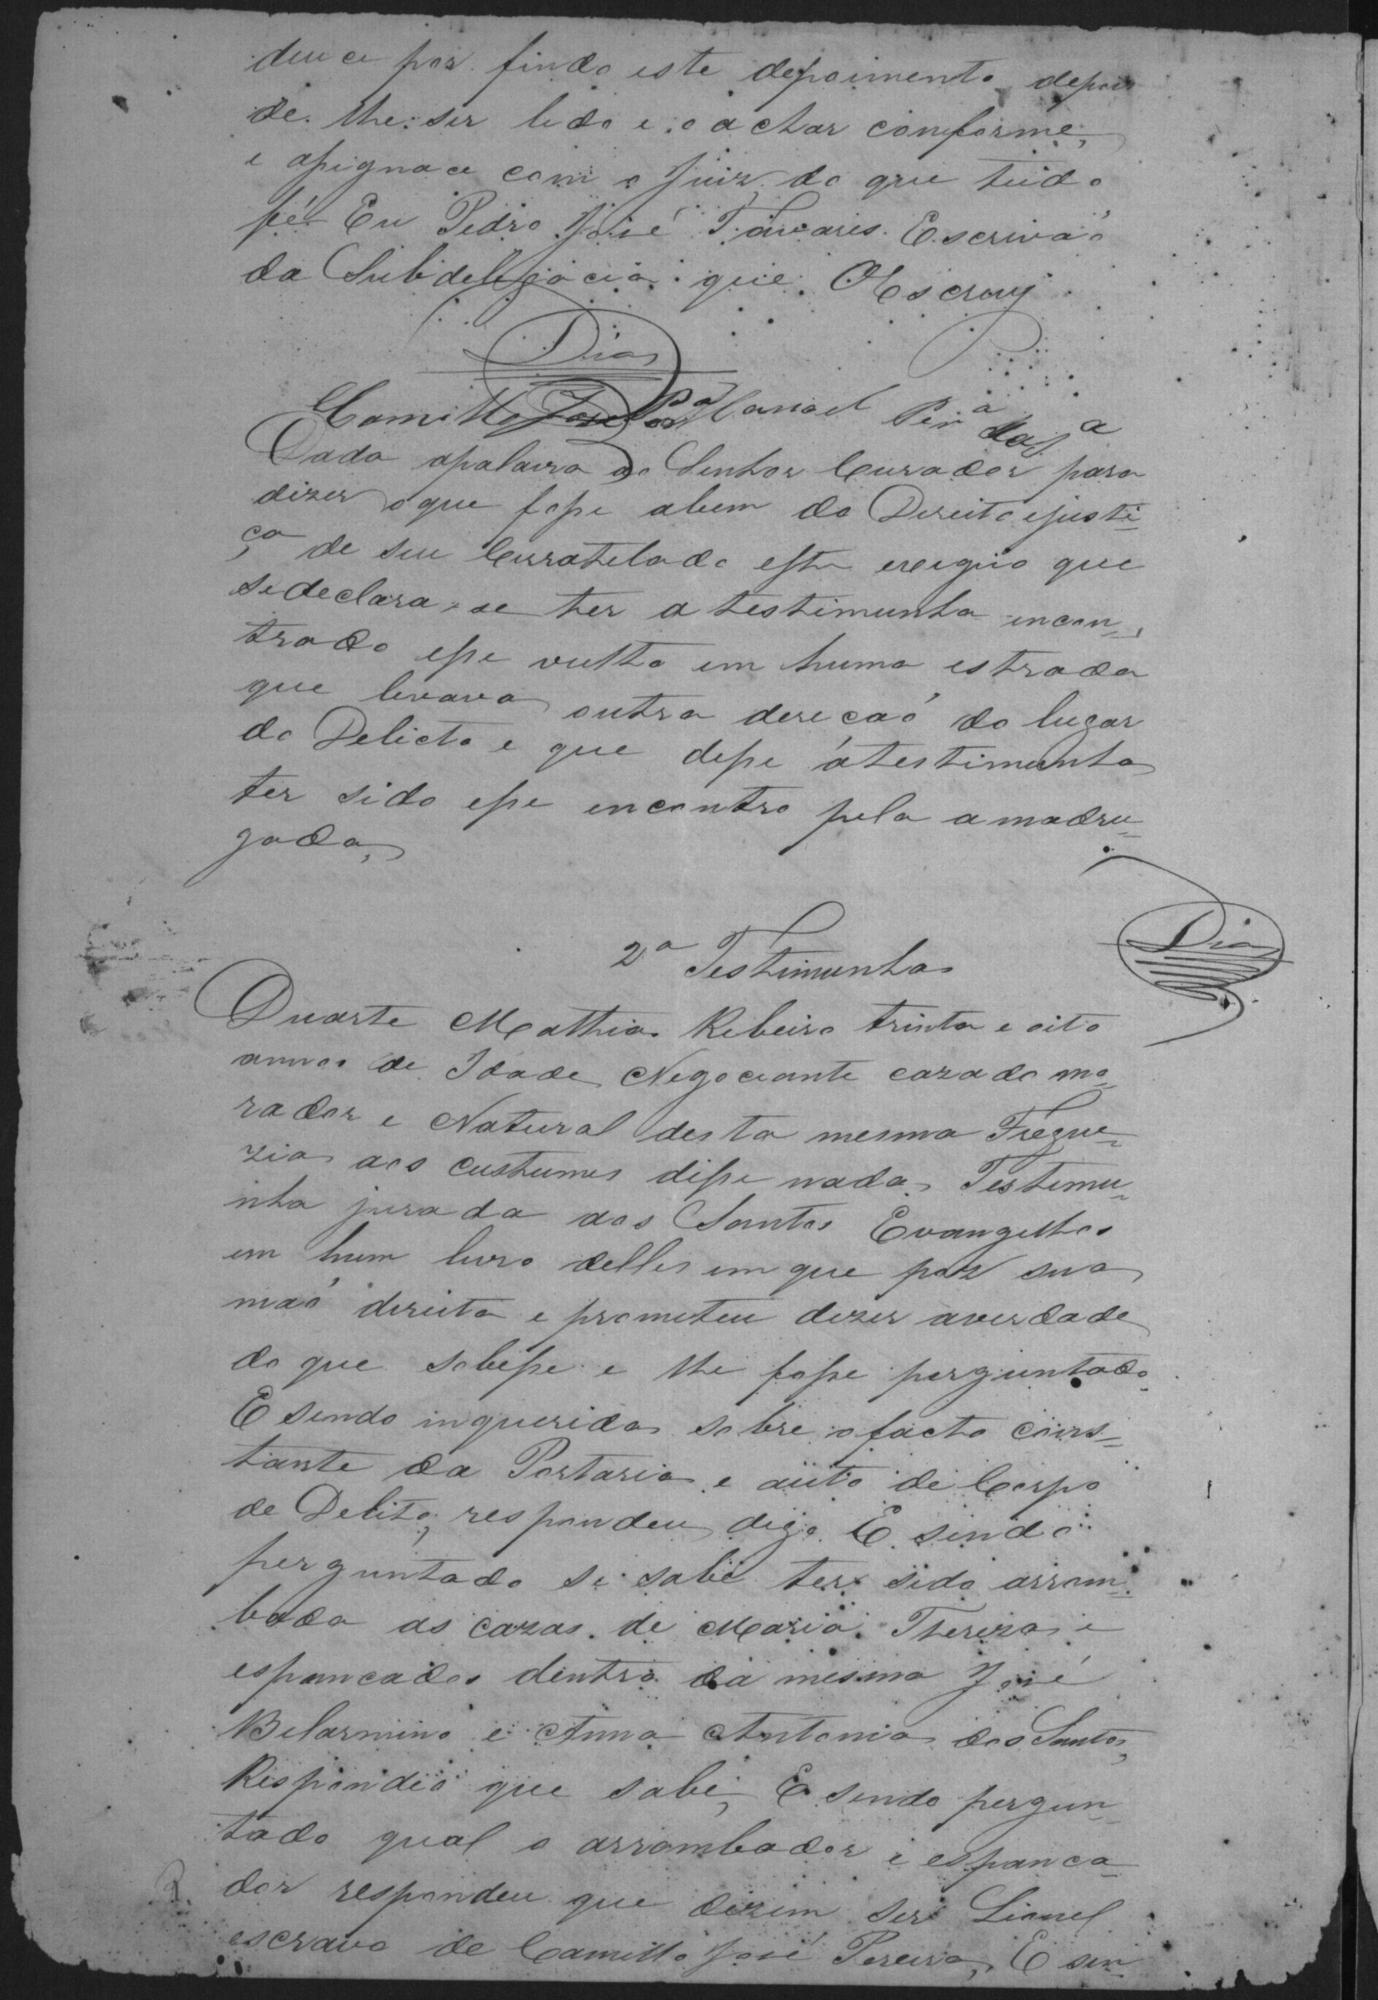 deuce por findo este depoimento depois
de lhe ser lido e o achar conforme,
e assignace com o Juiz, do que tudo
fé Eu Pedro José Tavares Escrivaõ
da Subdelegacia que Oescrevy
Dias
Camillo José Manoel Per.ª da S.ª
Dada apalavra ao Senhor Curador para
dizer oque fosse abem do Direito ejusti-
ça de seu Curatelado este exegio que
sedeclara-se ter a testimunha encon-
trado esse vulto em huma estrada
que levava outra direcaõ do lugar
do Delicto e que disse átestimunha
ter sido esse encontro pela amadru-
gada,
Dias
2ª Testimunha
Duarte Mathias Ribeiro trinta e oito
annos de Idade, Negociante cazado mo-
rador e Natural desta mesma Fregue-
zia aos custumes disse nada, Testimu-
nha jurada aos Santos Evangelhos
em hum livro delles em que poz sua
maõ direita e prometeu dizer averdade
do que sobesse e lhe fosse perguntado
E sendo inquerida sobre o facto cons-
tante da Portaria e auto de Corpo
de Delito, respondeu digo E sendo
perguntado se sabe ter sido arrom-
bada as cazas de Maria Thereza e
espancados dentro da mesma José
Belarmino e Anna Antonia dos Santos,
Respondeo que sabe, E sendo pergun-
tado qual o arrombador e espanca-
dor respondeu que dizem ser Lionel
escravo de Camillo José Pereira, E sen-